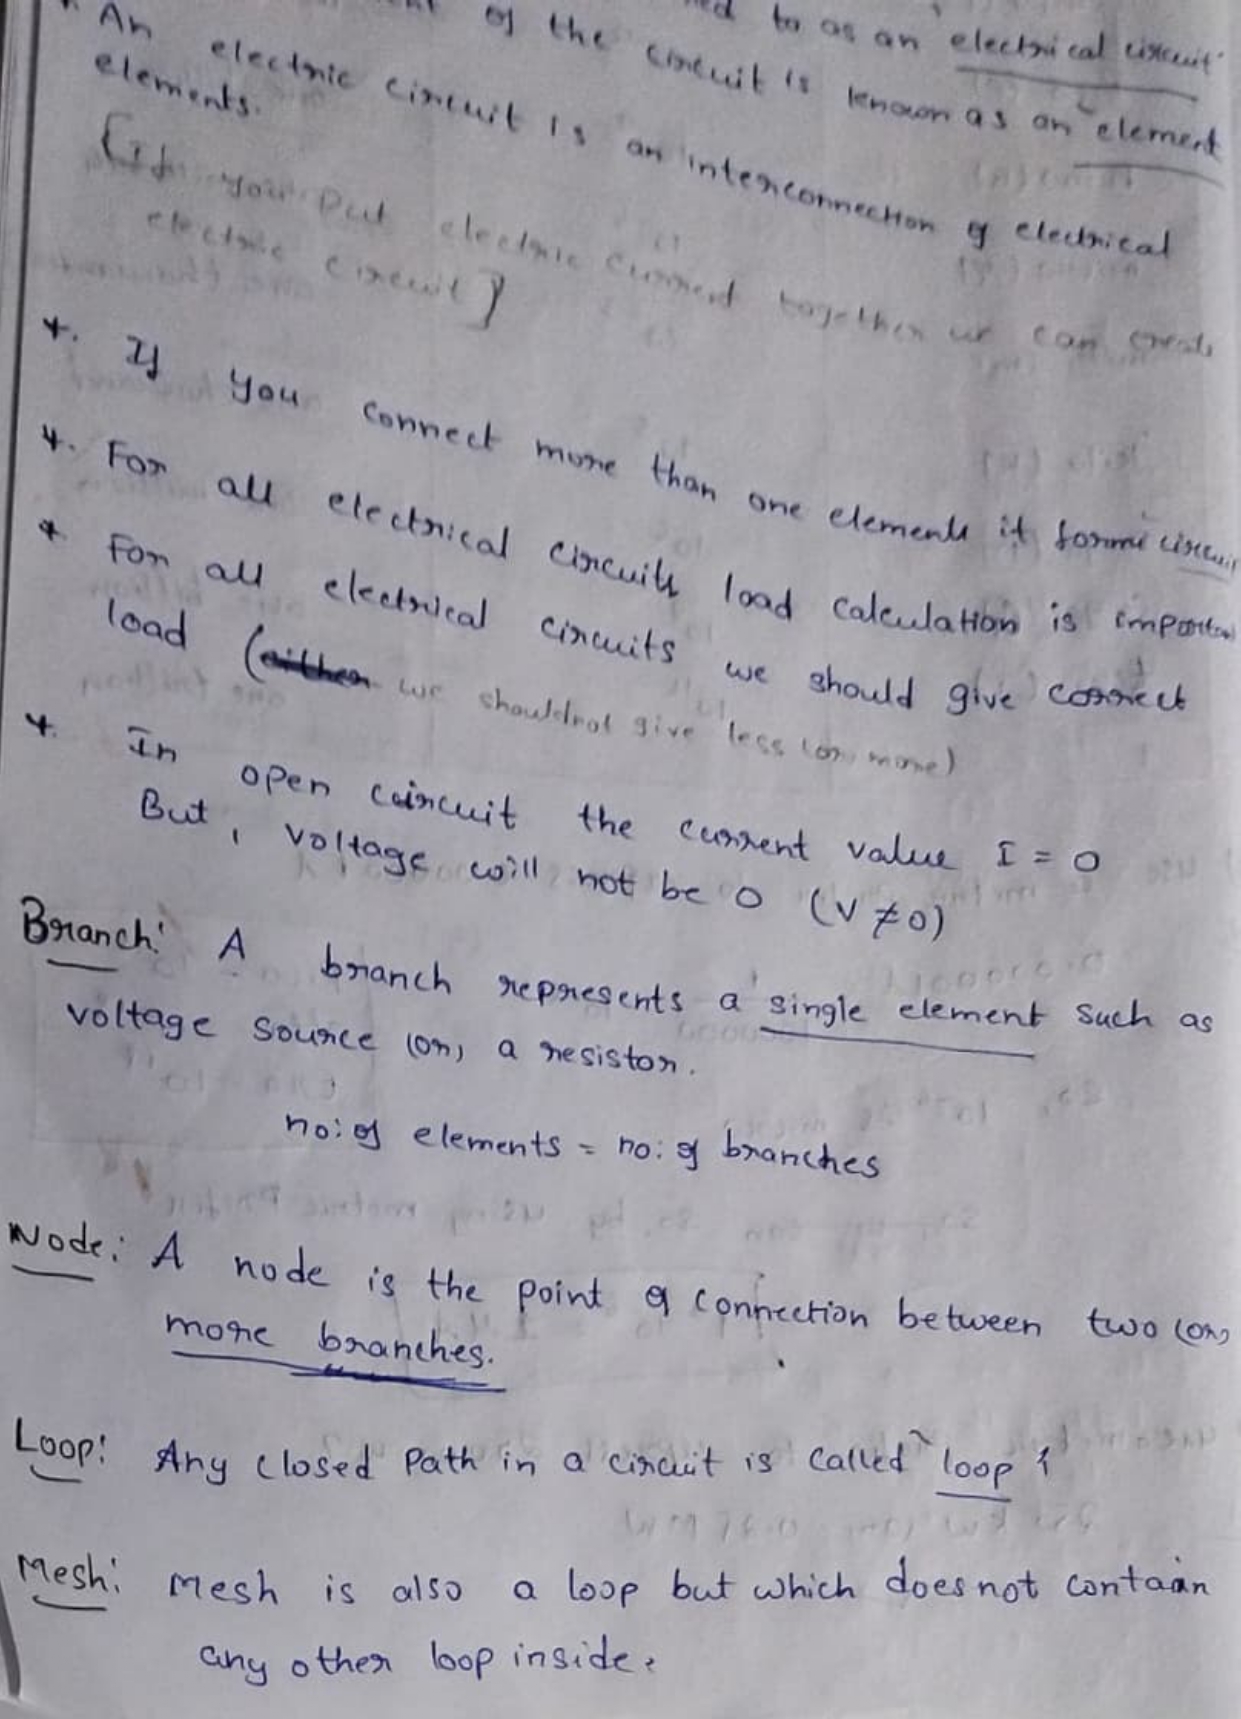 to as an electrical circuit
of the circuit is known as an "element
* An electric circuit is an interconnection of electrical
elements.
[If you put electric current together we can create
electric circuit]
*. If you connect more than one elements it forms circuit
*. For all electrical circuits load calculation is important
* For all electrical circuits we should give correct
load (either we shouldnot give less (or) more)
*. In open coircuit the current value I = 0
But, voltage will not be 0 (V ≠ 0)
Branch: A branch represents a single element such as
voltage source (or) a resistor.
no: of elements = no: of branches
Node: A node is the point of connection between two (or)
more branches.
Loop: Any closed Path in a circuit is called "loop"
Mesh: Mesh is also a loop but which does not contain
any other loop inside.